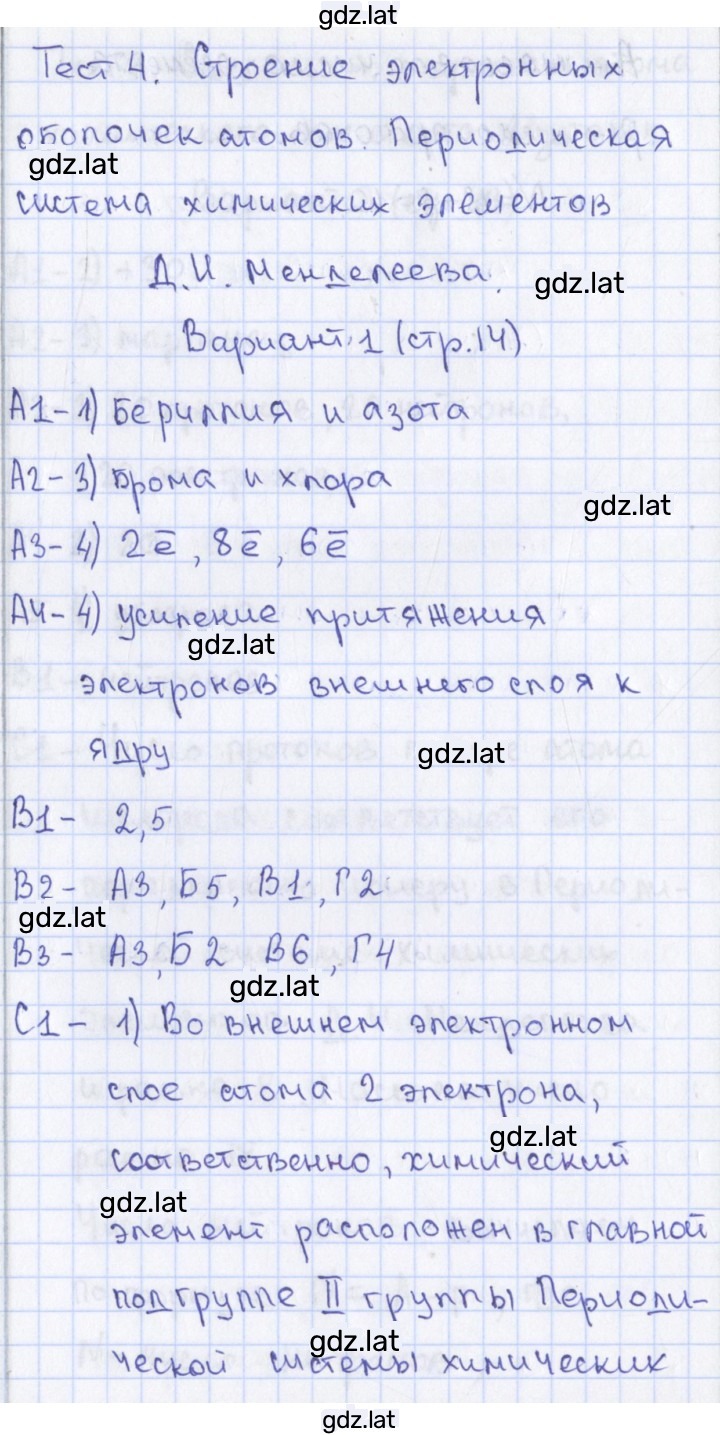 gdz.lat
Тест 4. Строение электронных
оболочек атомов. Периодическая
gdz.lat
система химических элементов
Д.И. Менделеева.
gdz.lat
Вариант 1 (стр.14)
А1-1) Бериллия и азота
А2-3) Брома и хлора
gdz.lat
А3-4) 2ē, 8ē, 6ē
А4-4) усиление притяжения
gdz.lat
электронов внешнего слоя к
ядру
gdz.lat
В1- 2,5
В2- А3, Б5, В1, Г2
gdz.lat
В3- А3, Б2 В6, Г4
gdz.lat
С1- 1) Во внешнем электронном
слое атома 2 электрона,
gdz.lat
соответственно, химический
gdz.lat
элемент расположен в главной
подгруппе II группы Периоди-
gdz.lat
ческой системы химических
gdz.lat